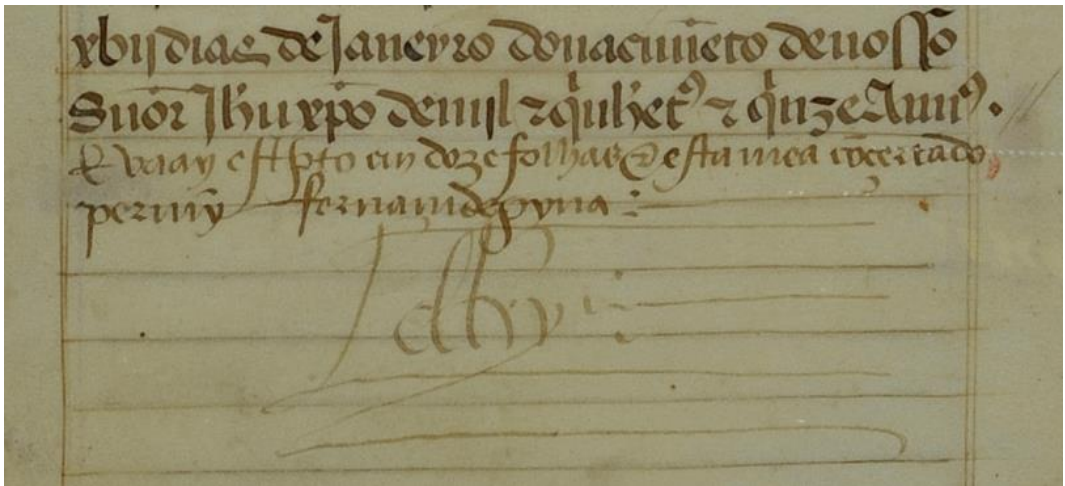 xbij dias de Janeyro do nacimēto de nosso
Snõr Jhũ xp̃o de mjl ⁊ qĩnhētꝰ ⁊ qĩnze Annꝰ.
E vaay esc̃pto em doze folhas ⁊ esta mea cõcertado
per mỹ fernam de pyna :
el Rey :